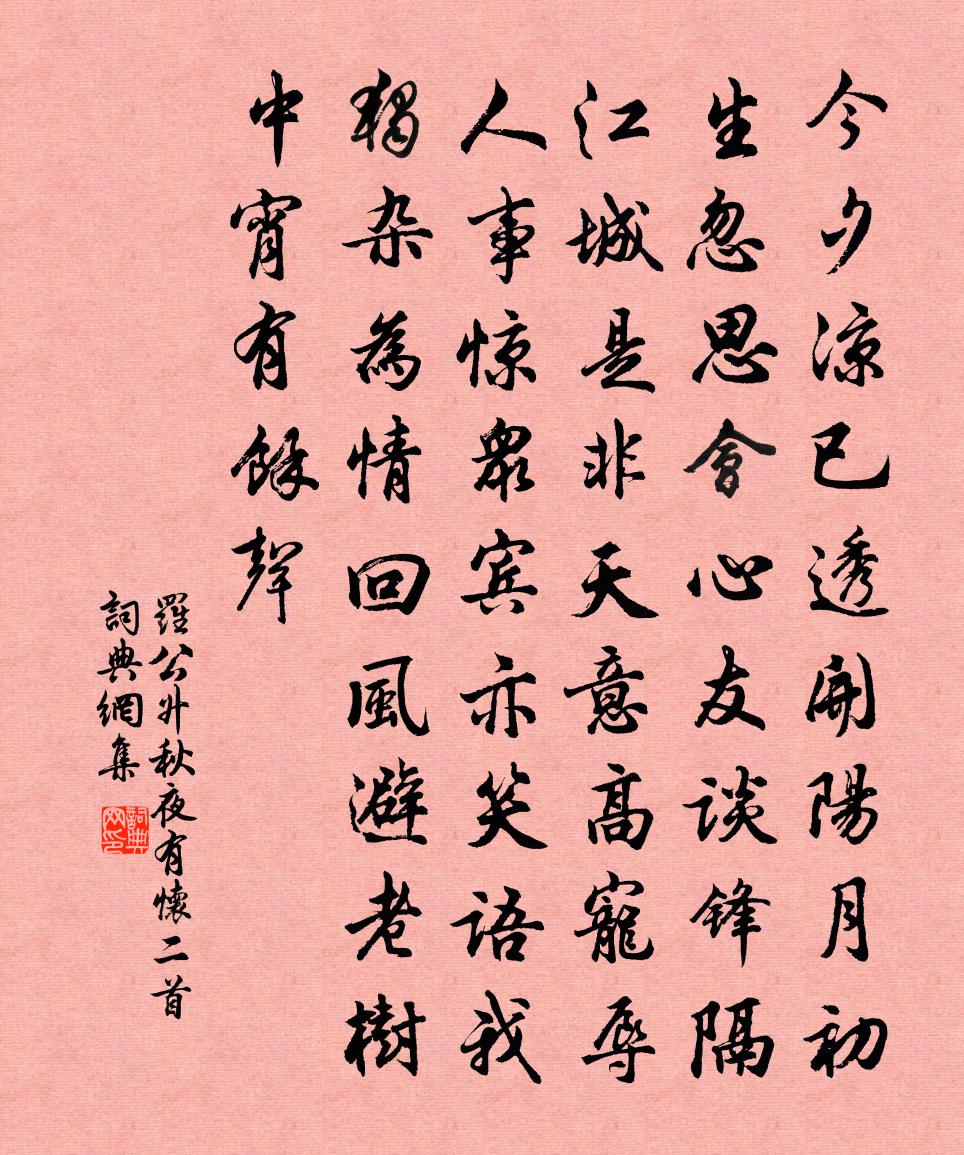 今夕凉已透開陽月初
生忽思會心友谈锋隔
江城是非天意高寵辱
人事惊衆宾亦笑語我
獨杂為情回風避老樹
中宵有餘聲
羅公升秋夜有懷二首
詞典網集
詞典网印